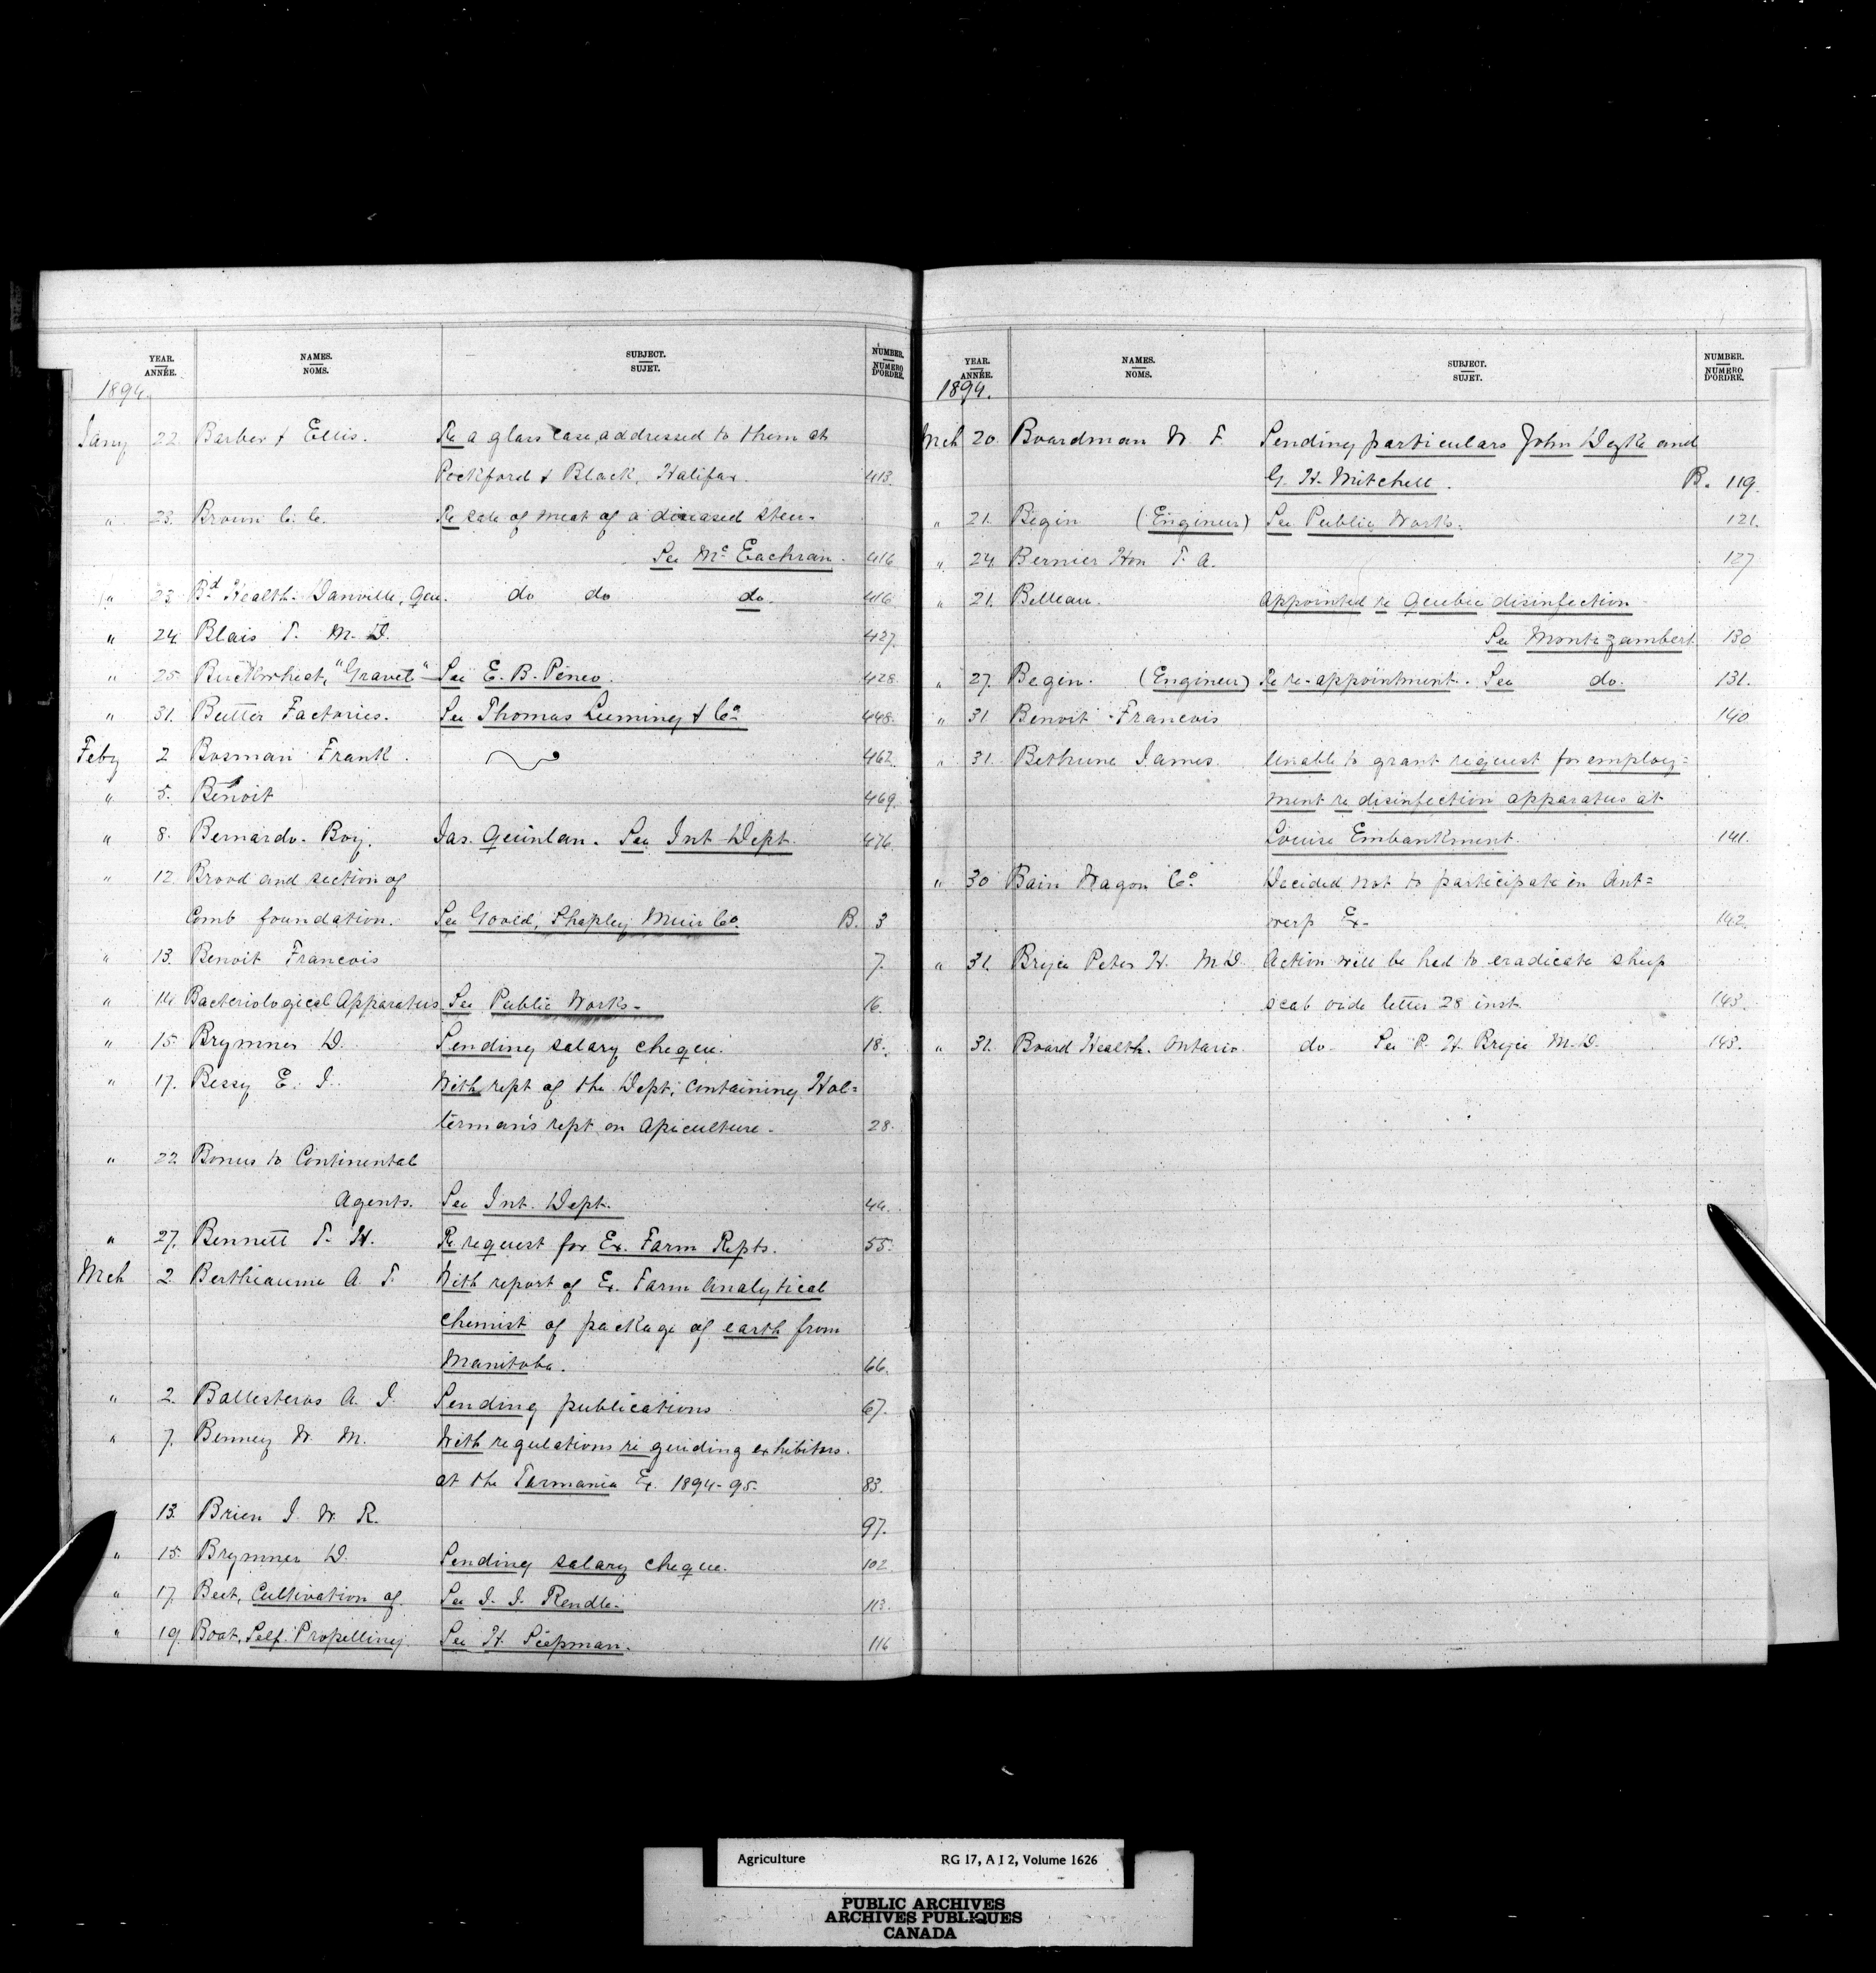 YEAR. NAMES. SUBJECT. NUMBER.
ANNÉE. NOMS. SUJET. NUMERO D'ORDRE.
1894.
Jany 22. Barber & Ellis. Re a glass case addressed to them at
Peckford & Black, Halifax. 413.
" 23. Brown C. C. Re sale of meat of a diseased steer.
See McEachran. 416
" 23. Bd Health. Danville, Que. do do do. 416
" 24. Blais T. M.D. 427.
" 25. Buckwheat, "Gravel" See E. B. Pineo. 428.
" 31. Butter Factories. See Thomas Luming & Co. 448.
Feby 2 Bosman Frank. 462.
" 5. Benoit 469.
" 8. Bernardo. Boy. Jas. Quinlan. See Int Dept. 476.
" 12. Brood and section of
Comb foundation. See Goold, Shapley Muir Co. B. 3
" 13. Benoit Francois 7.
" 14. Bacteriological Apparatus See Public Works. 16.
" 15. Brymner D. Sending salary cheque. 18.
" 17. Bessy E. J. With rept of the Dept, containing Hol=
terman's rept on Apiculture. 28.
" 22. Bonus to Continental
Agents. See Int. Dept. 44.
" 27. Bennett T. H. Re request for Ex. Farm Repts. 55.
Mch 2. Berthiaume A. T. With report of Ex. Farm Analytical
Chemist of package of earth from
Manitoba. 66.
" 2. Ballesteros A. J. Sending publications 67.
" 7. Benney W. M. With regulations re guiding exhibitors
at the Tasmania Ex. 1894-95. 83.
13. Brien J. W. R. 97.
" 15. Brymner D. Sending salary cheque. 102
" 17. Beet, Cultivation of. See J. J. Rendle. 113.
" 19. Boat, Self. Propelling. See H. Siepman. 116
YEAR. NAMES. SUBJECT. NUMBER.
ANNÉE. NOMS. SUJET. NUMERO D'ORDRE.
1894.
Mch 20. Boardman W. F. Sending particulars John Dyke and
G. H. Mitchell. B. 119.
" 21. Begin (Engineer) See Public Works. 121.
" 24. Bernier Hon T. A. 127
" 21. Belleau. Appointed re Quebec disinfection
See Montizambert 130
" 27. Begin. (Engineer) Re re-appointment. See do. 131.
" 31 Benoit Francois 140
" 31. Bethune James. Unable to grant request for employ=
ment re disinfection apparatus at
Louise Embankment. 141.
" 30 Bain Wagon Co. Decided not to participate in Ant=
werp Ex. 142.
" 31. Bryce Peter H. M.D. Action will be had to eradicate sheep
scab vide letter 28 inst. 143.
" 31. Board Health. Ontario. do. See P. H. Bryce M.D. 143.
Agriculture RG 17, A I 2, Volume 1626
PUBLIC ARCHIVES
ARCHIVES PUBLIQUES
CANADA